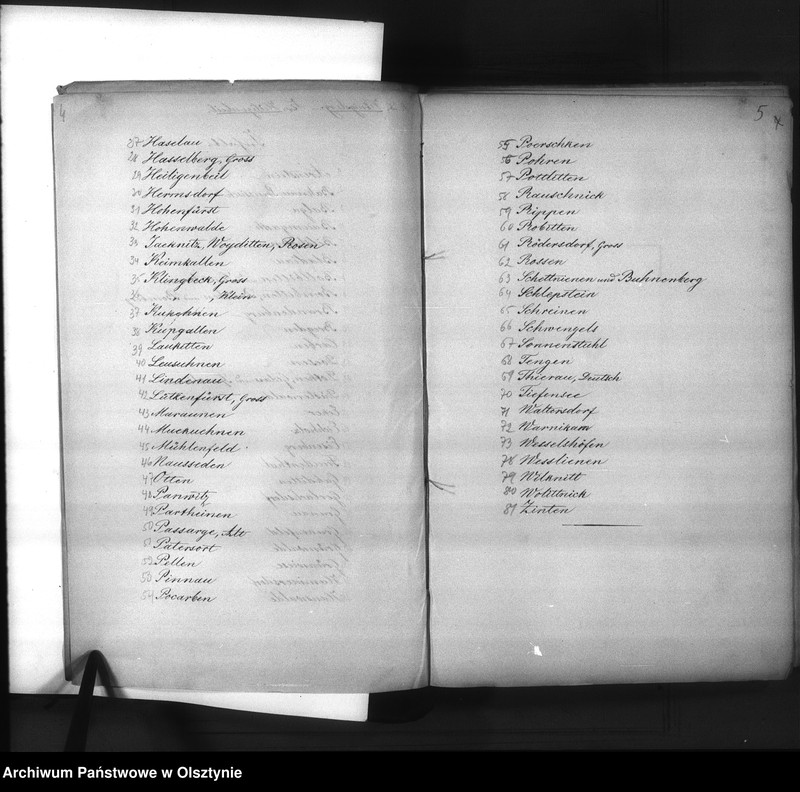 4
27 Haselau
28 Hasselberg, Gross
29 Heiligenbeil
30 Hermsdorf
31 Hohenfürst
32 Hohenwalde
33 Jaeknitz, Woyditten, Rosen
34 Keimkallen
35 Klingbeck, Gross
36 " , Klein
37 Kukehnen
38 Kupgallen
39 Laukitten
40 Leusuhnen
41 Lindenau
42 Lütkenfürst, Gross
43 Maraunen
44 Muckuchnen
45 Mühlenfeld
46 Nausseden
47 Otten
48 Panwitz
49 Partheinen
50 Passarge, Alt
51 Patersort
52 Pellen
53 Pinnau
54 Pocarben
5
55 Poerschken
56 Pohren
57 Pottlitten
58 Rauschnick
59 Rippen
60 Robitten
61 Rödersdorf, Gross
62 Rossen
63 Schettnienen und Buhnenberg
64 Schlepstein
65 Schreinen
66 Schwengels
67 Sonnenstuhl
68 Tengen
69 Thierau, Deutsch
70 Tiefensee
71 Waltersdorf
72 Warnikam
73 Wesselshöfen
78 Wesslienen
79 Wilknitt
80 Wolittnick
81 Zinten
Archiwum Państwowe w Olsztynie